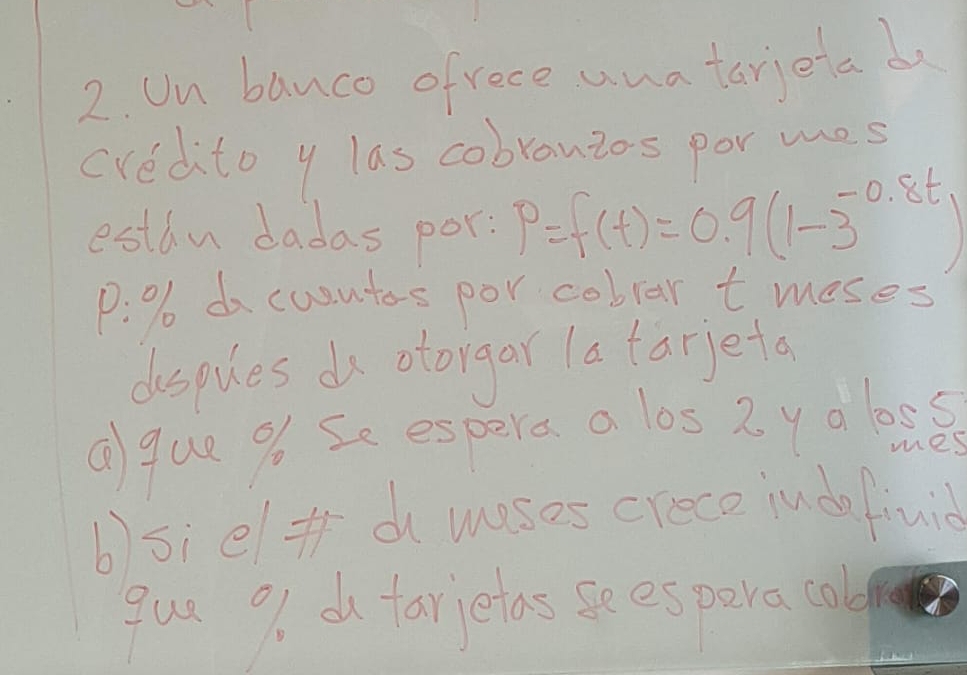 2. Un banco ofrece una tarjeta de
crédito y las cobranzas por mes
están dadas por: P=f(t)=0.9(1-3^-0.8t)
P:% de cuentas por cobrar t meses
después de otorgar la tarjeta
a) que % se espera a los 2 y a los 5
mes
b) si el # de meses crece indefinid
que % de tarjetas se espera cobrar